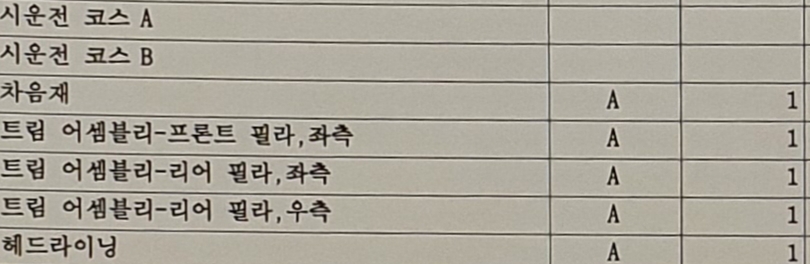 시운전 코스 A
시운전 코스 B
차음재 A 1
트림 어셈블리-프론트 필라,좌측 A 1
트림 어셈블리-리어 필라,좌측 A 1
트림 어셈블리-리어 필라,우측 A 1
헤드라이닝 A 1